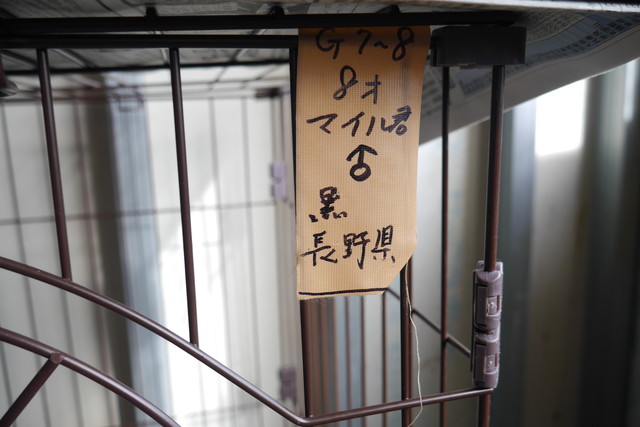 G7~8
8才
マイル君
♂
黒
長野県